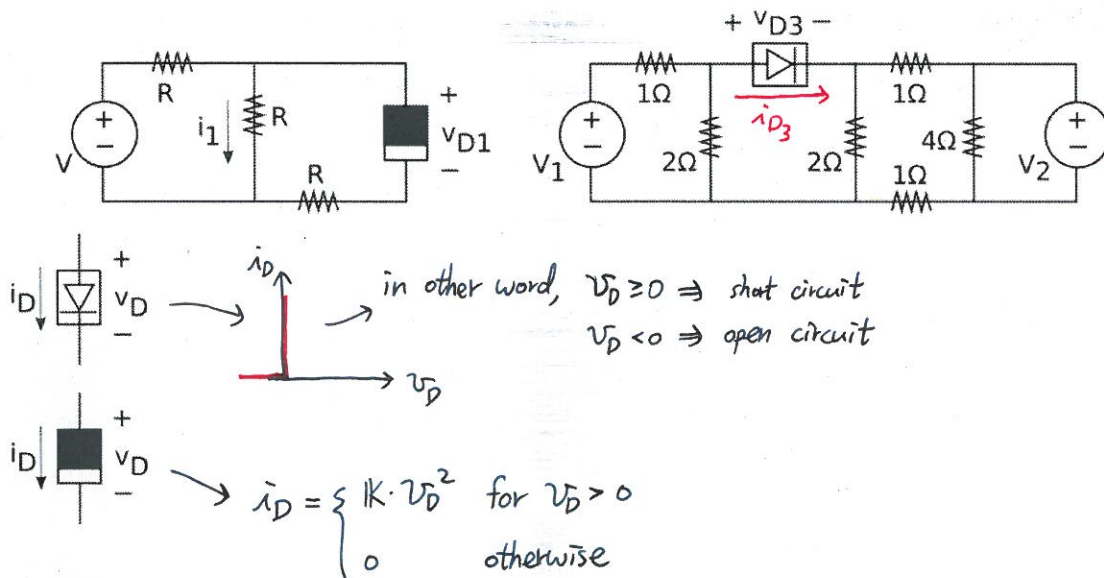 + vD3 −
R
1Ω
1Ω
iD3
+
−
V
i1
R
+
vD1
−
+
−
V1
2Ω
2Ω
4Ω
+
−
V2
R
1Ω
iD
+
vD
−
iD
vD
in other word, vD ≥ 0 ⇒ short circuit
vD < 0 ⇒ open circuit
iD
+
vD
−
iD = { K · vD² for vD > 0
0 otherwise